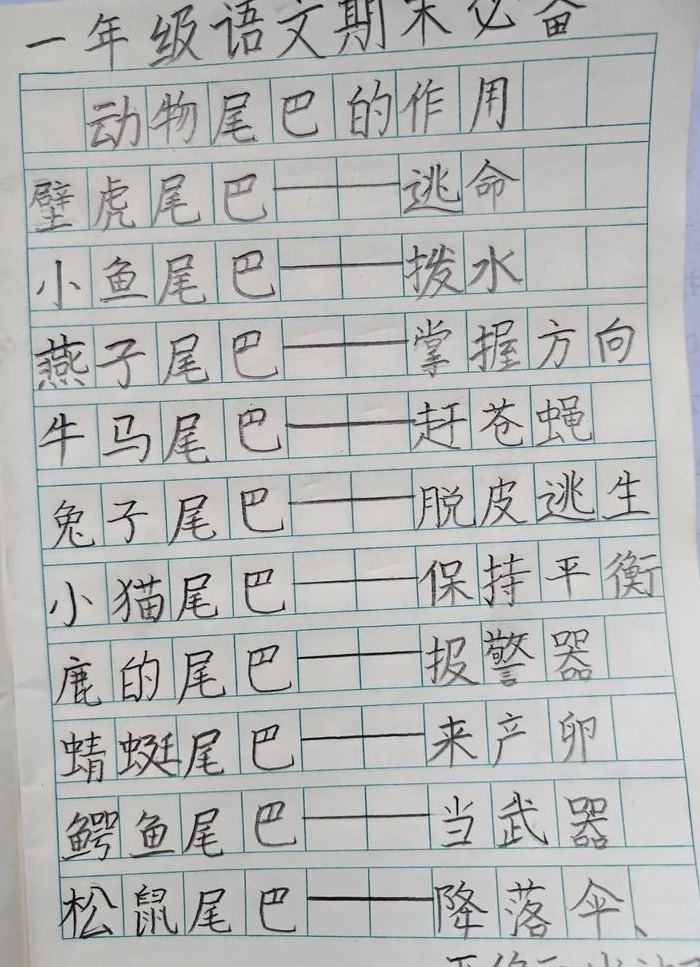 一年级语文期末必备
动物尾巴的作用
壁虎尾巴——逃命
小鱼尾巴——拨水
燕子尾巴——掌握方向
牛马尾巴——赶苍蝇
兔子尾巴——脱皮逃生
小猫尾巴——保持平衡
鹿的尾巴——报警器
蜻蜓尾巴——来产卵
鳄鱼尾巴——当武器
松鼠尾巴——降落伞、